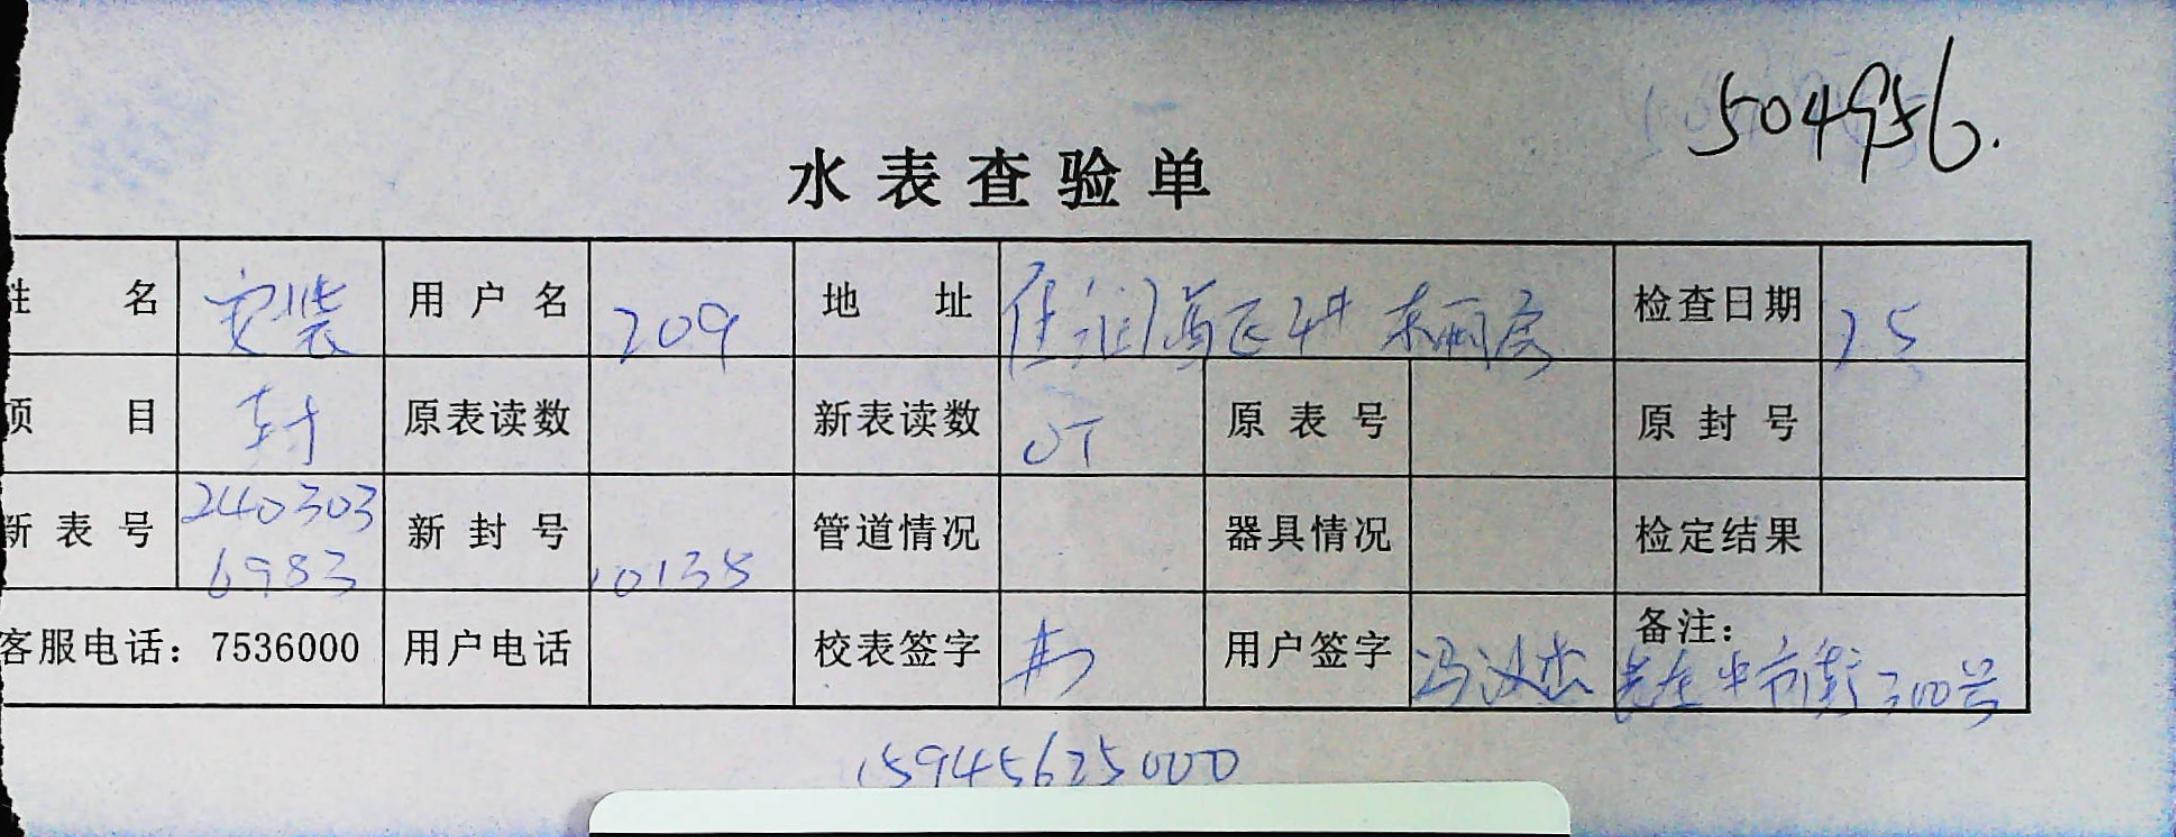 504956.
水表查验单
姓 名 安装 用户名 209 地 址 检查日期 25
项 目 封 原表读数 新表读数 0T 原表号 原封号
新表号 2403036983 新封号 10138 管道情况 器具情况 检定结果
客服电话：7536000 用户电话 校表签字 用户签字 冯汉杰 备注： 中市街300号
15945625000